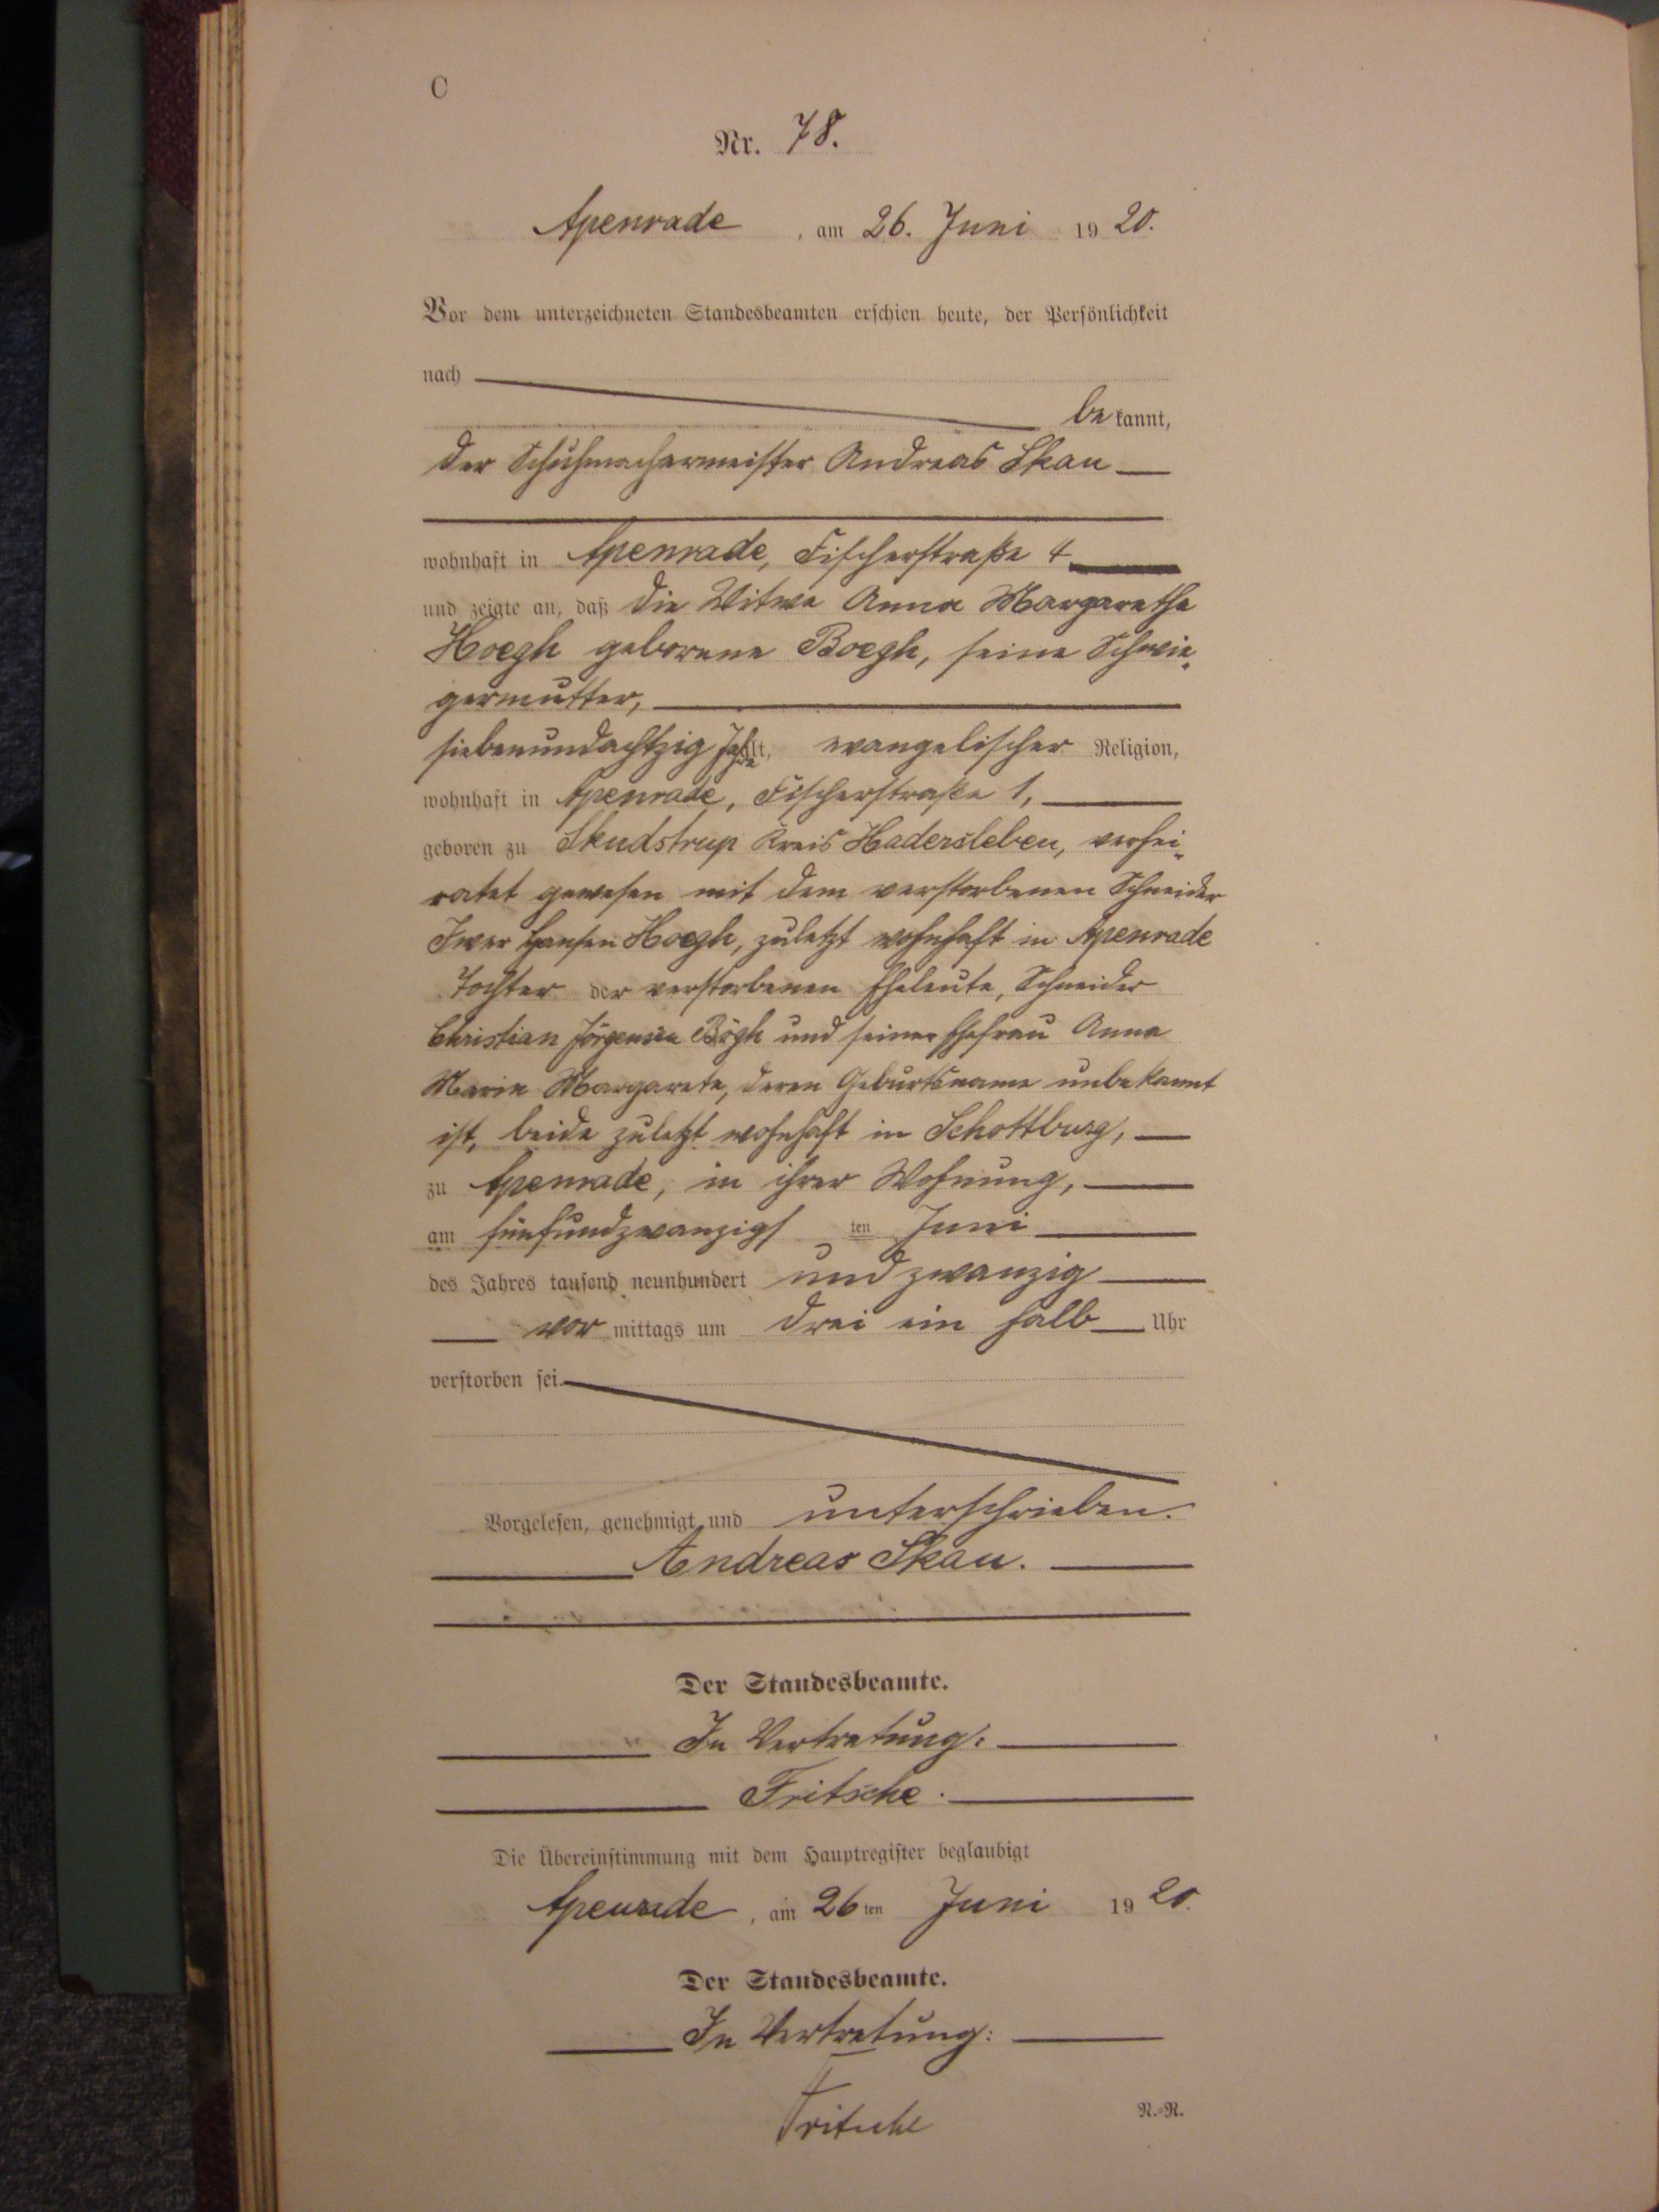 C
Nr. 78.
Apenrade, am 26. Juni 1920.
Vor dem unterzeichneten Standesbeamten erschien heute, der Persönlichkeit
nach
bekannt,
der Schuhmachermeister Andreas Skau
wohnhaft in Apenrade, Fischerstraße 4
und zeigte an, daß die Witwe Anna Margarethe
Hoegh geborene Boegh, seine Schwie-
germutter,
siebenundachtzig Jahre alt, evangelischer Religion,
wohnhaft in Apenrade, Fischerstraße 1,
geboren zu Skudstrup Kreis Hadersleben, verhei-
ratet gewesen mit dem verstorbenen Schneider
Iwer Hansen Hoegh, zuletzt wohnhaft in Apenrade
Tochter der verstorbenen Eheleute, Schneider
Christian Jörgensen Bögh und seiner Ehefrau Anna
Marie Margarete, deren Geburtsname unbekannt
ist, beide zuletzt wohnhaft in Schottburg,
zu Apenrade, in ihrer Wohnung,
am fünfundzwanzigsten Juni
des Jahres tausend neunhundert und zwanzig
vormittags um drei ein halb Uhr
verstorben sei.
Vorgelesen, genehmigt und unterschrieben.
Andreas Skau.
Der Standesbeamte.
In Vertretung:
Fritsche.
Die Übereinstimmung mit dem Hauptregister beglaubigt
Apenrade, am 26ten Juni 1920.
Der Standesbeamte.
In Vertretung:
Fritsche
N.-R.